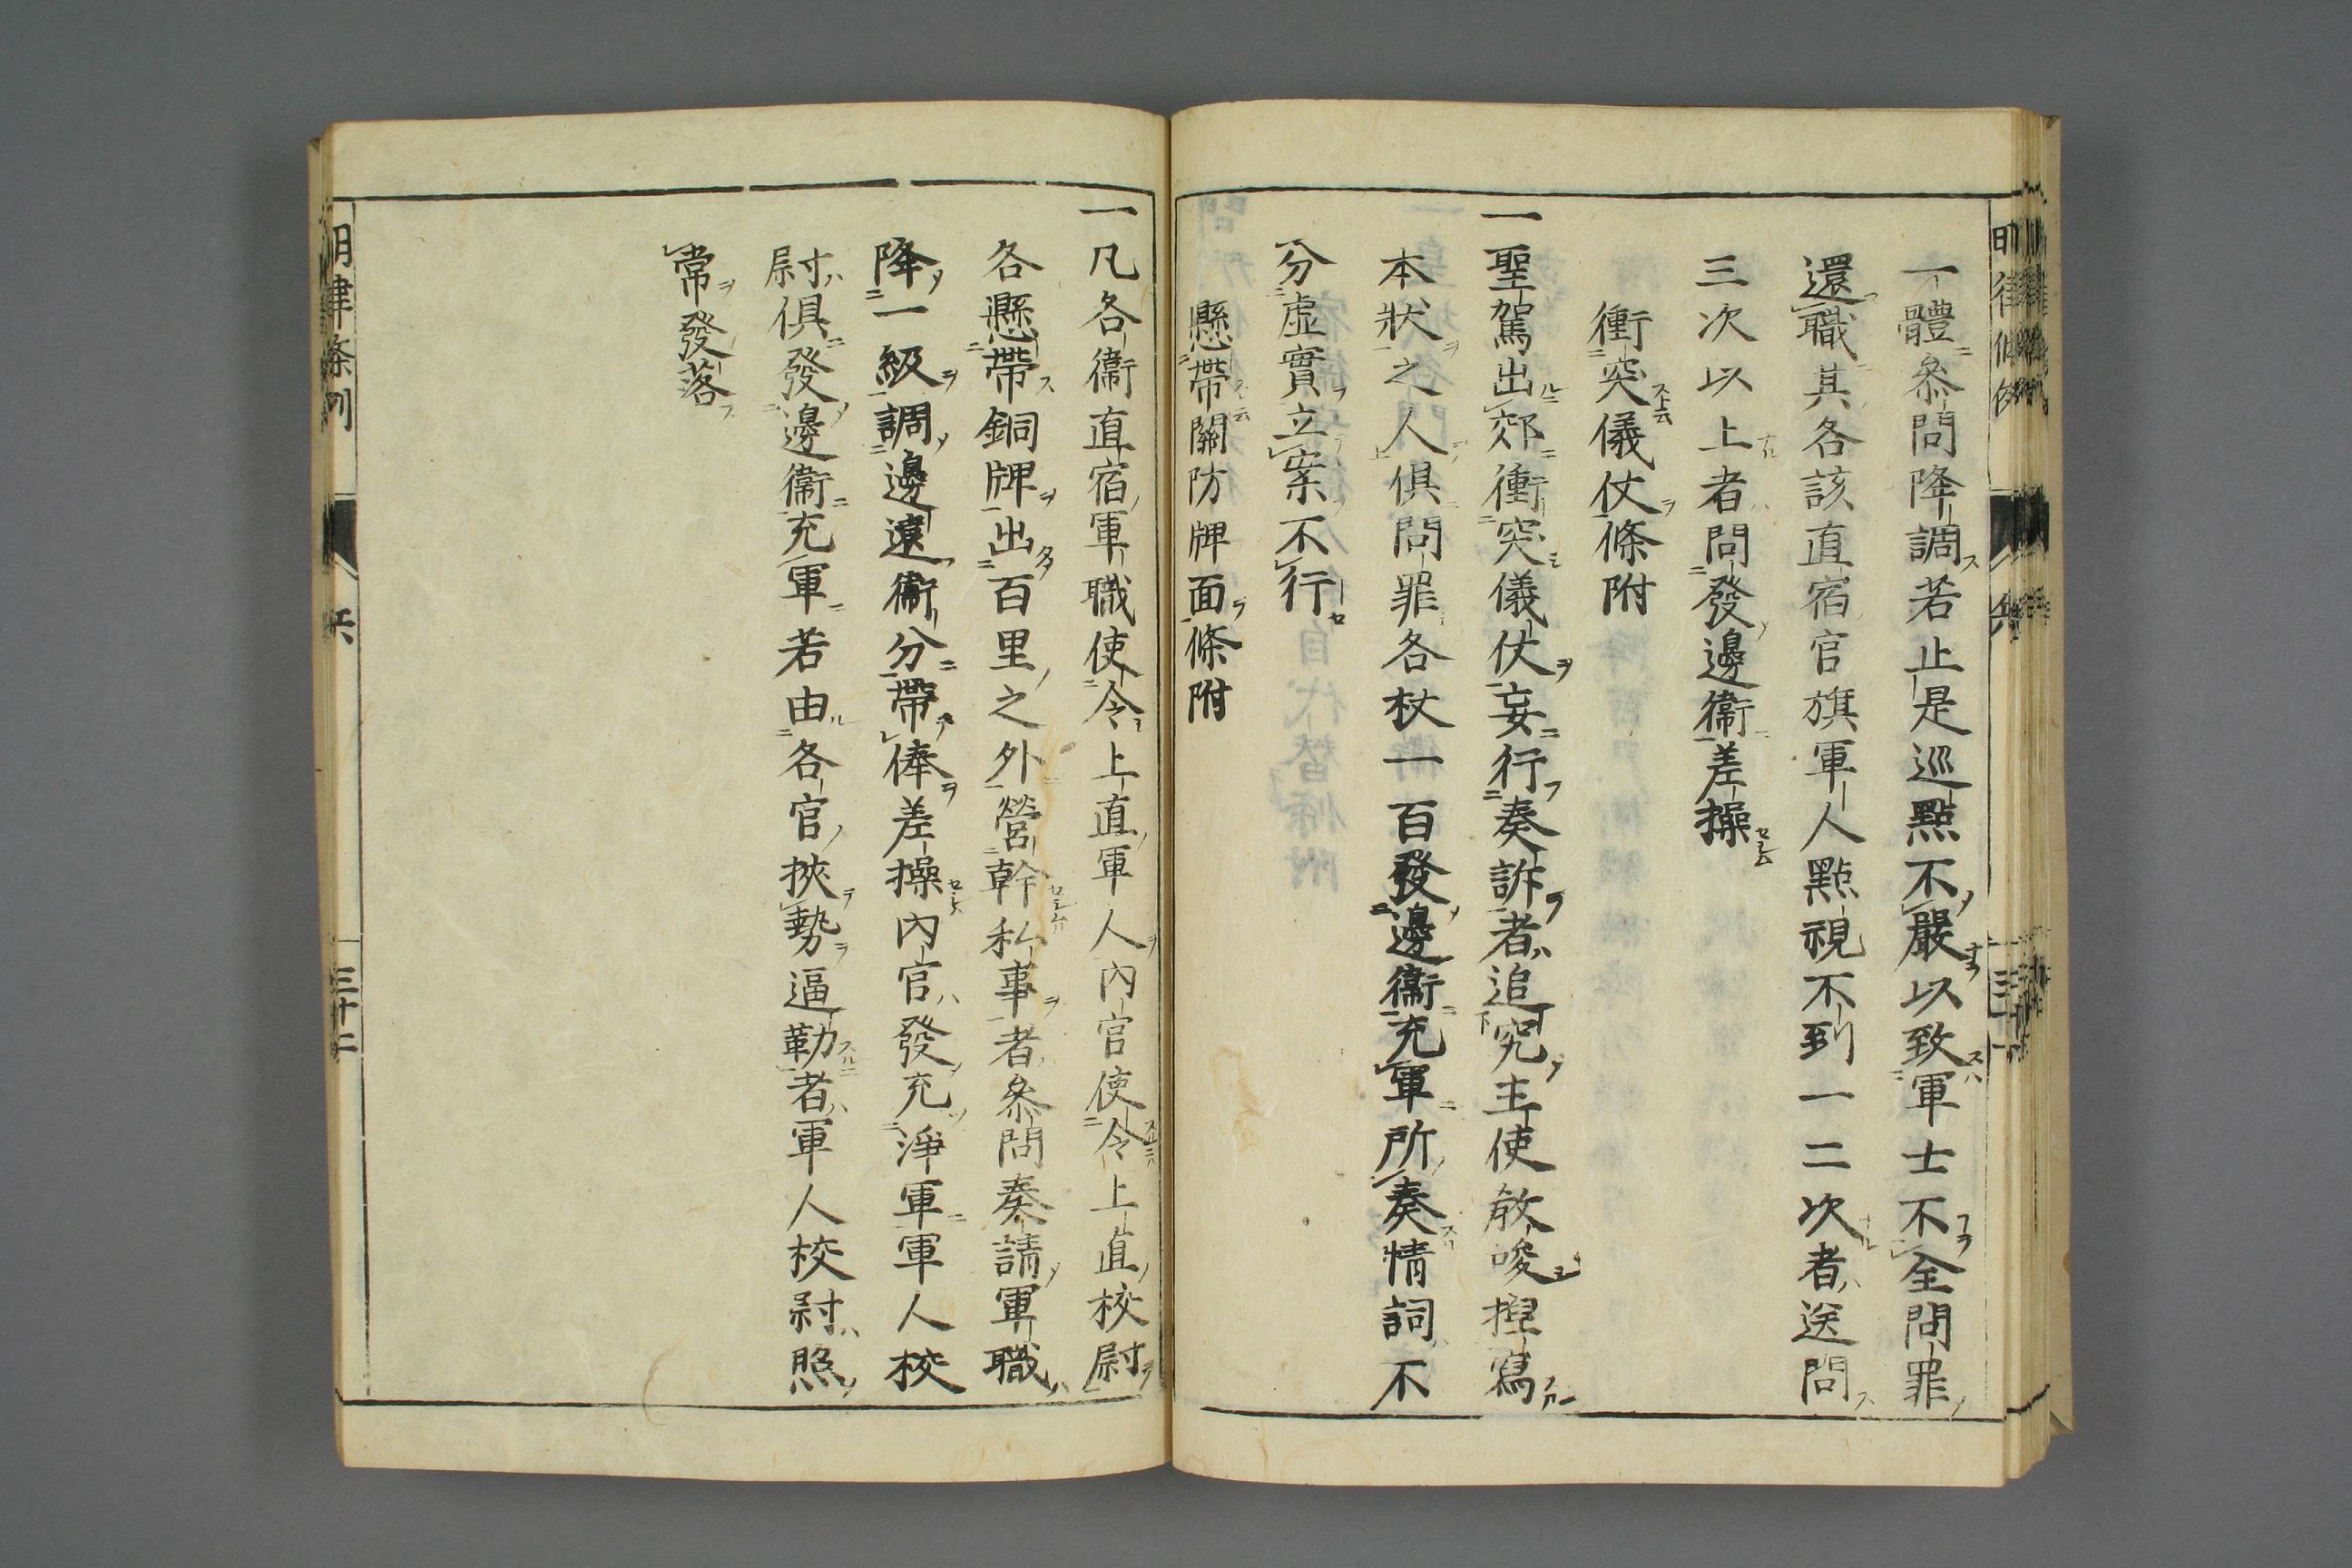 一體參問降調若止是巡點不嚴以致軍士不全問罪
還職其各該直宿官旗軍人點視不到一二次者送問
三次以上者問發邊衞差操
衝突儀仗條附
一聖駕出郊衝突儀仗妄行奏訴者追究主使教唆揑寫
本狀之人俱問罪各杖一百發邊衞充軍所奏情詞不
分虛實立案不行
懸帶關防牌面條附
一凡各衞直宿軍職使令上直軍人內官使令上直校尉
各懸帶銅牌出百里之外營幹私事者參問奏請軍職
降一級調邊遠衞分帶俸差操內官發充淨軍軍人校
尉俱發邊衞充軍若由各官挾勢逼勒者軍人校尉照
常發落
明律條例 兵 三十二